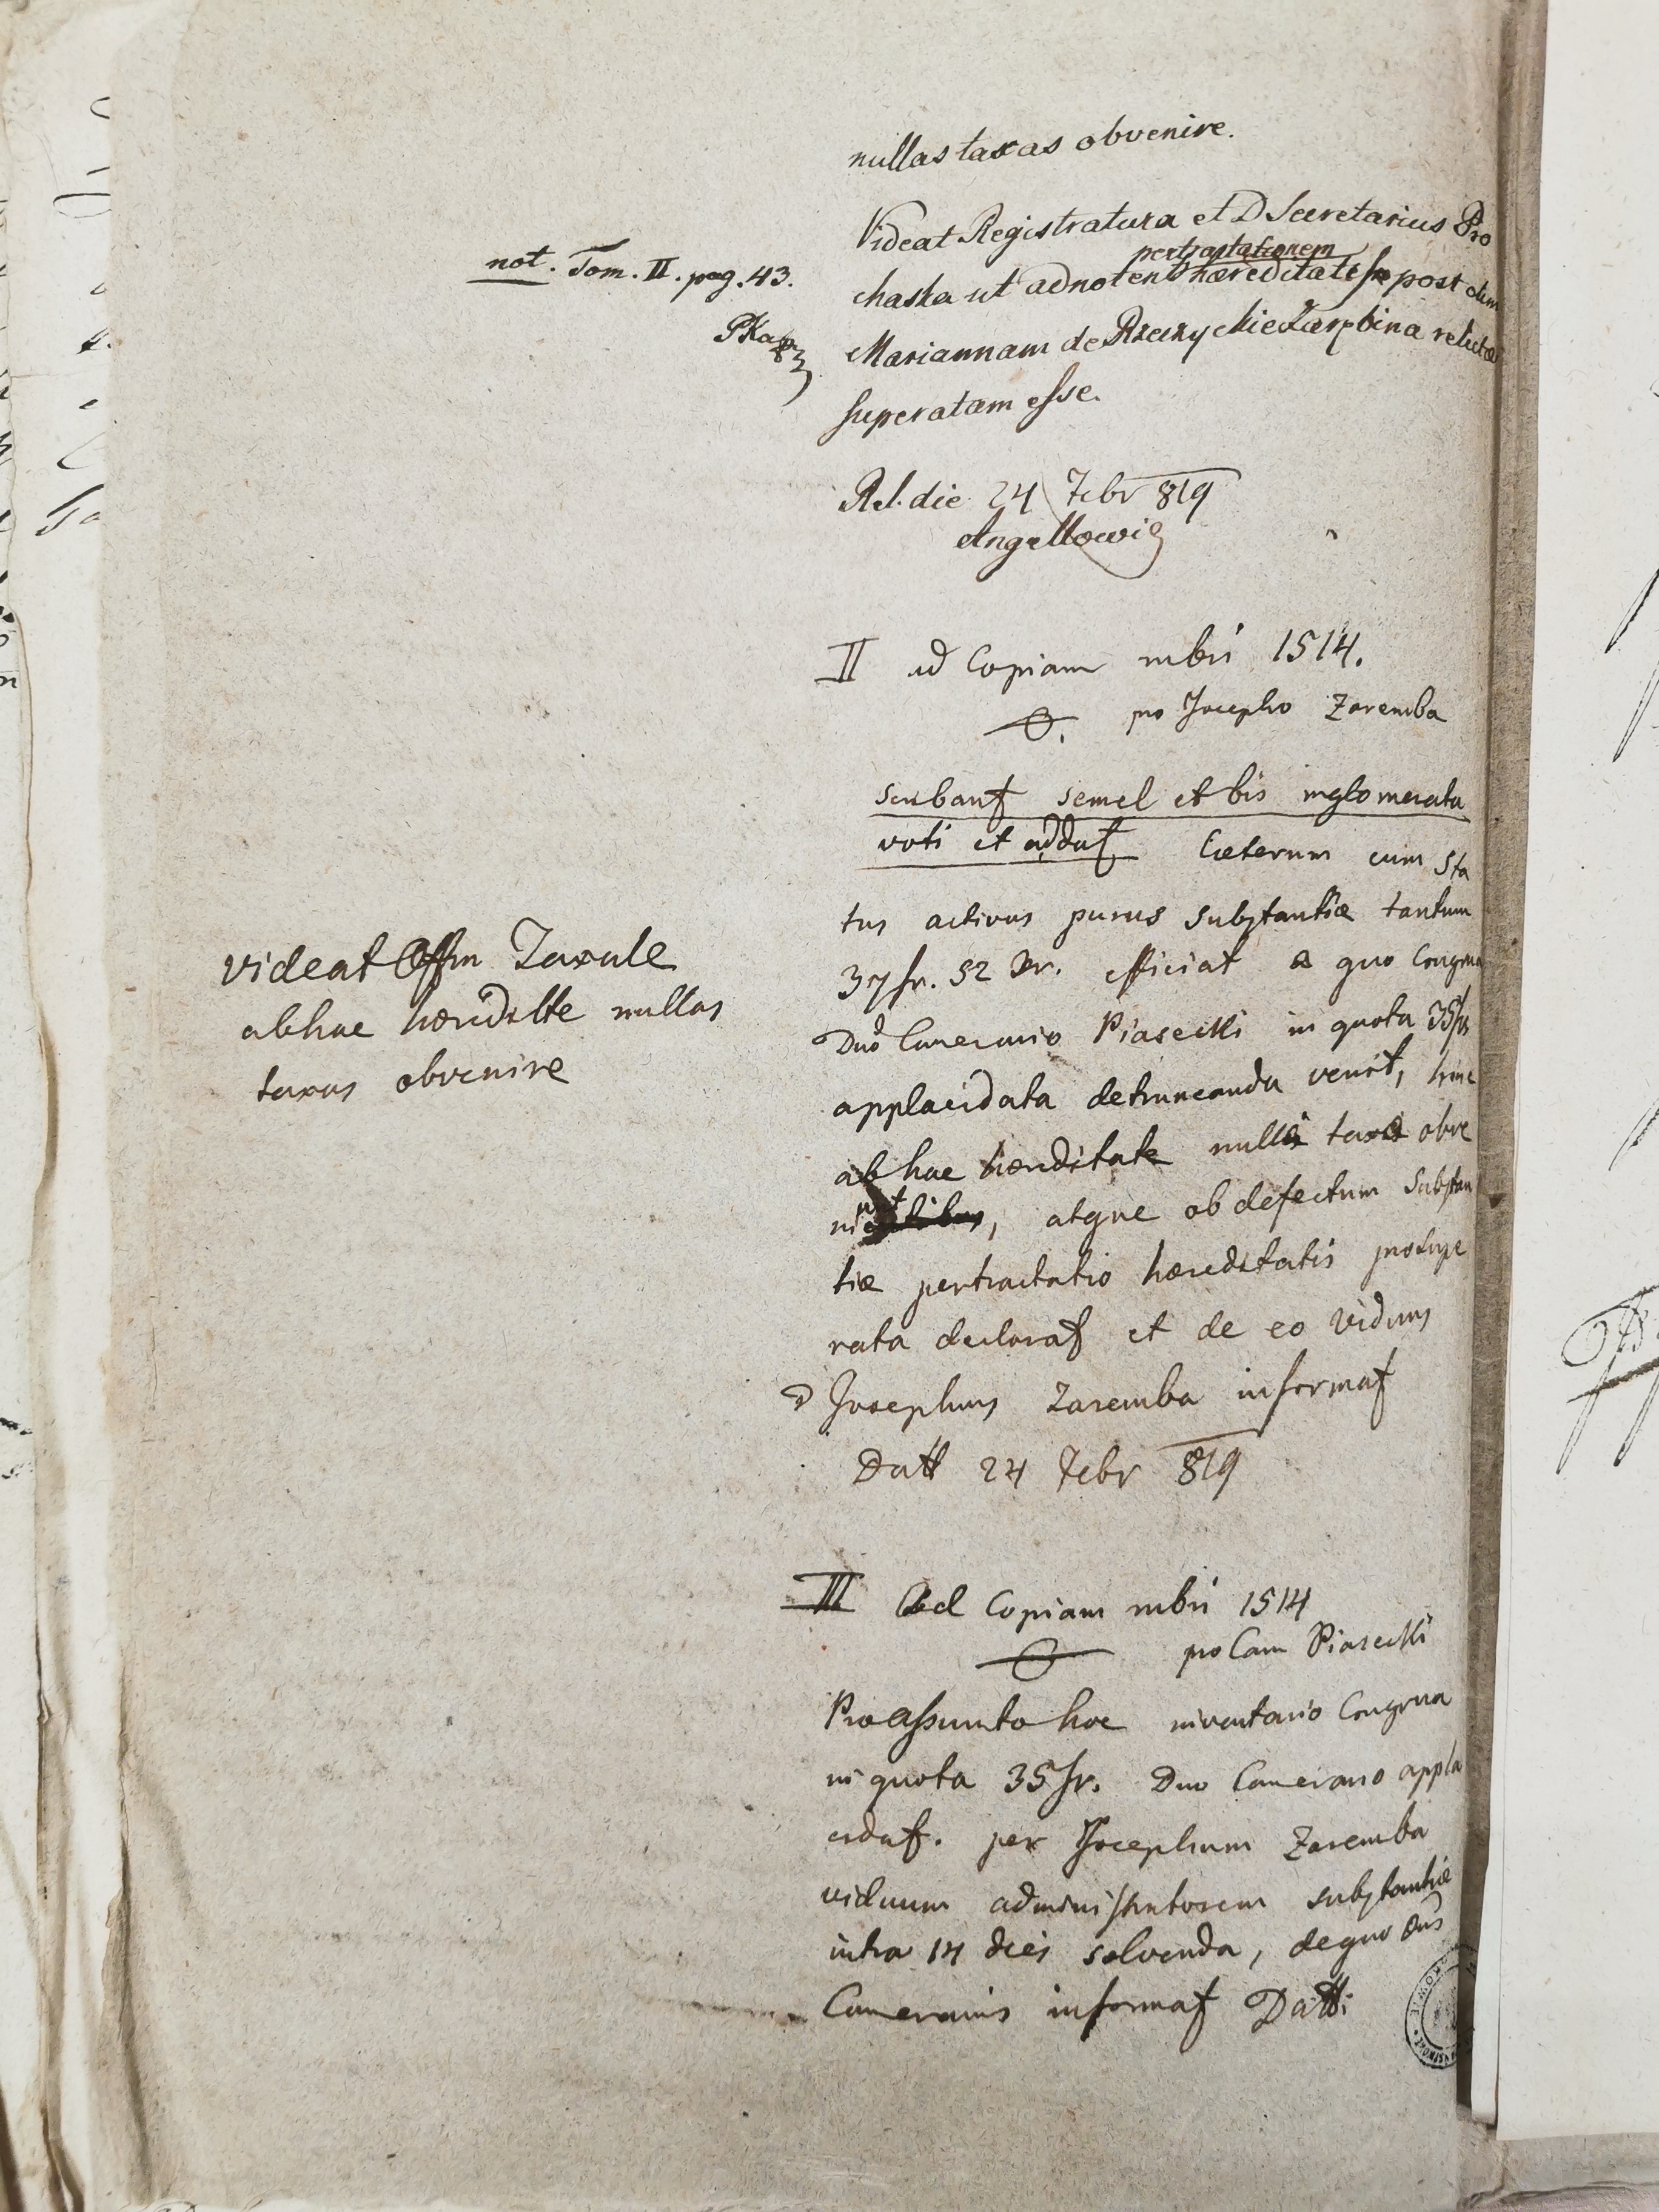 nullas taxas obvenire.
Videat Registratura et D Secretarius Pro
chaska ut adnotent
pertractationem
hæreditatis post olim
not. Tom. II. pag. 43.
Mariannam de Rzeczyckie Zarębina relicta
superatam esse.
Rel. die 24 Febr 819
Angellowicz
II ad Copiam nubri 1514.
pro Josepho Zaremba
scribant semel et bis inglomerata
voti et addat Cæterum cum Sta
tus activus purus substantiæ tantum
37 fr. 52 xr. efficiat a quo Congrua
Dno Camerario Piasecki in quota 35 fr
applacidata detruncanda venit, hinc
ab hac hæreditate nulla taxa obve
nit, atque ob defectum Substan
tiæ pertractatio hæreditatis prosupe
rata declarat et de eo viduus
D Josephus Zaremba informat
Datt 24 Febr 819
videat Offin Taxale
ab hac hæreditte nullas
taxas obvenire
III Ad Copiam nubri 1514
pro Cam Piasecki
Pro assumto hoc inventario Congrua
in quota 35 fr. Dno Camerario appla
cidat. per Josephum Zaremba
viduum administratorem substantiæ
intra 14 dies solvenda, de quo Dns
Camerarius informat Datt: